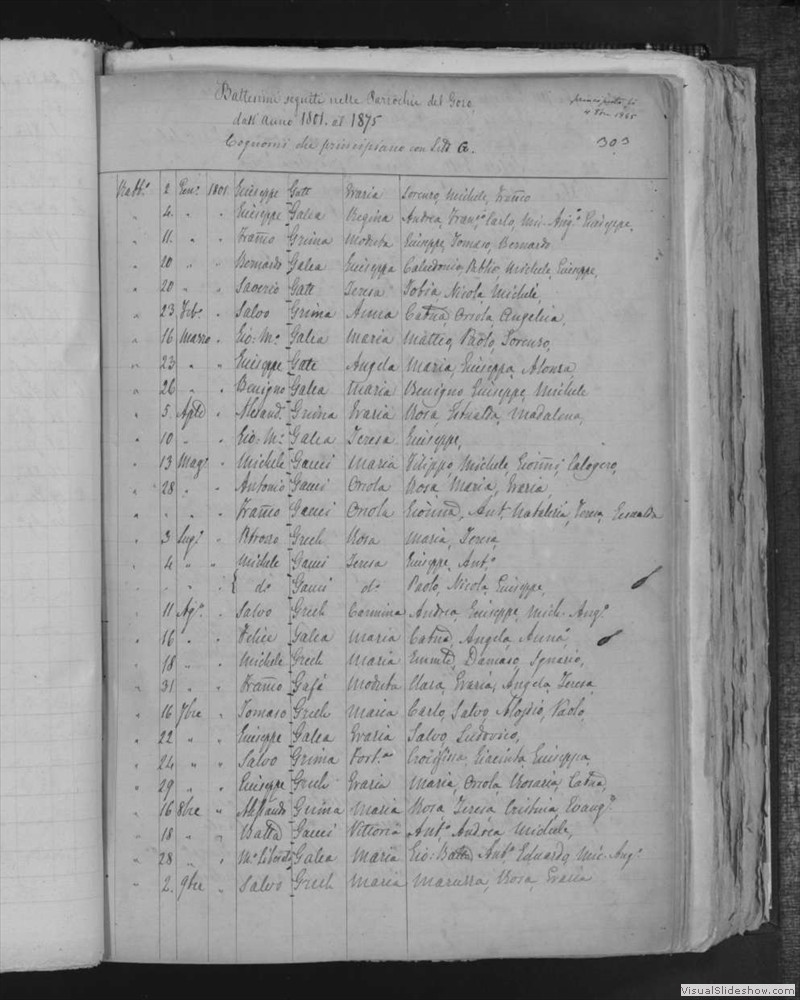 Battesimi seguiti nelle Parrochie del Gozo
dall'Anno 1801. al 1875
Cognomi che principiano con Litt G.
1865
303
Rabb.º 2 Gen.º 1801. Giuseppe Gatt Grazia Lorenzo, Michele,
" 4. " " Giuseppe Galea Regina Andrea, Carlo, Mic. Ang.º Giuseppe,
" 11. " " Grima Modesta Giuseppe, Tomaso, Bernardo
" 20 " " Bernardo Galea Giuseppa Publio, Michele, Giuseppe,
" 20 " " Saverio Gatt Teresa Tobia, Nicola, Michele,
" 23 Feb.º " Salvo Grima Anna Catña, Orsola, Angelica,
" 16 Marzo " Gio: M.ª Galea Maria Matteo, Paolo, Lorenzo,
" 23 " " Giuseppe Gatt Angela Maria, Giuseppa, Alonza
" 26 " " Benigno Galea Maria Benigno, Giuseppe, Michele
" 5. Aple " Alesand. Grima Grazia Rosa, Madalena,
" 10 " " Gio: M.ª Galea Teresa Giuseppe,
" 13 Mag.º " Michele Gauci Maria Filippo, Michele, Calogero,
" 28 " " Antonio Gauci Orsola Rosa, Maria, Grazia,
" " " Gauci Orsola Teresa,
" 3 Lug.º " Grech Rosa Maria, Teresa,
" 4 " " Michele Gauci Teresa Giuseppe, Ant.º
" " " { d.º Gauci d.º Paolo, Nicola, Giuseppe,
" 11 Ag.º " Salvo Grech Carmina Andrea, Giuseppe, Mich. Ang.º
" 16 " " Felice Galea Maria Catña, Angela, Anna,
" 18 " " Michele Grech Maria Damaso, Ignazio,
" 31 " " Gafà Modesta Clara, Grazia, Angela, Teresa,
" 16 7bre " Tomaso Grech Maria Carlo, Salvo, Aloysio, Paolo,
" 22 " " Giuseppe Galea Grazia Salvo, Ludovico,
" 24 " " Salvo Grima Fort.ª Crocifissa, Giacinta, Giuseppa,
" 29 " " Giuseppe Grech Grazia Maria, Orsola, Rosaria, Catña,
" 16 8bre " Grima Maria Rosa, Teresa, Cristina, Evang.ª
" 18 " " Batta Gauci Vittoria Ant.º Andrea, Michele,
" 28 " " Galea Maria Gio: Batta, Ant.º Eduardo, Mic. Ang.º
" 2. 9bre " Salvo Grech Maria Maruzza, Rosa, Grazia
VisualSlideshow.com